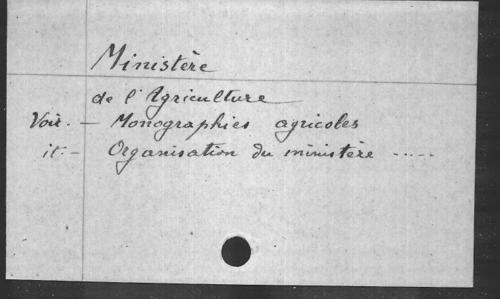 Ministère
de l'Agriculture
Voir. — Monographies agricoles
it. — Organisation du ministère .....